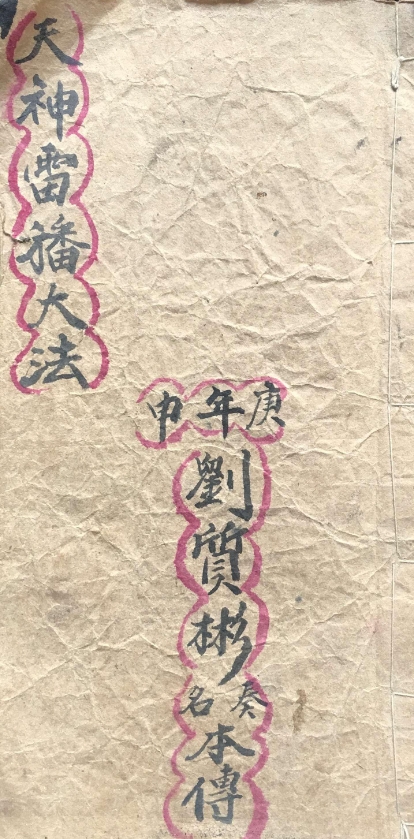 庚年申
劉質彬
奏名
本傳
天神雷旛大法